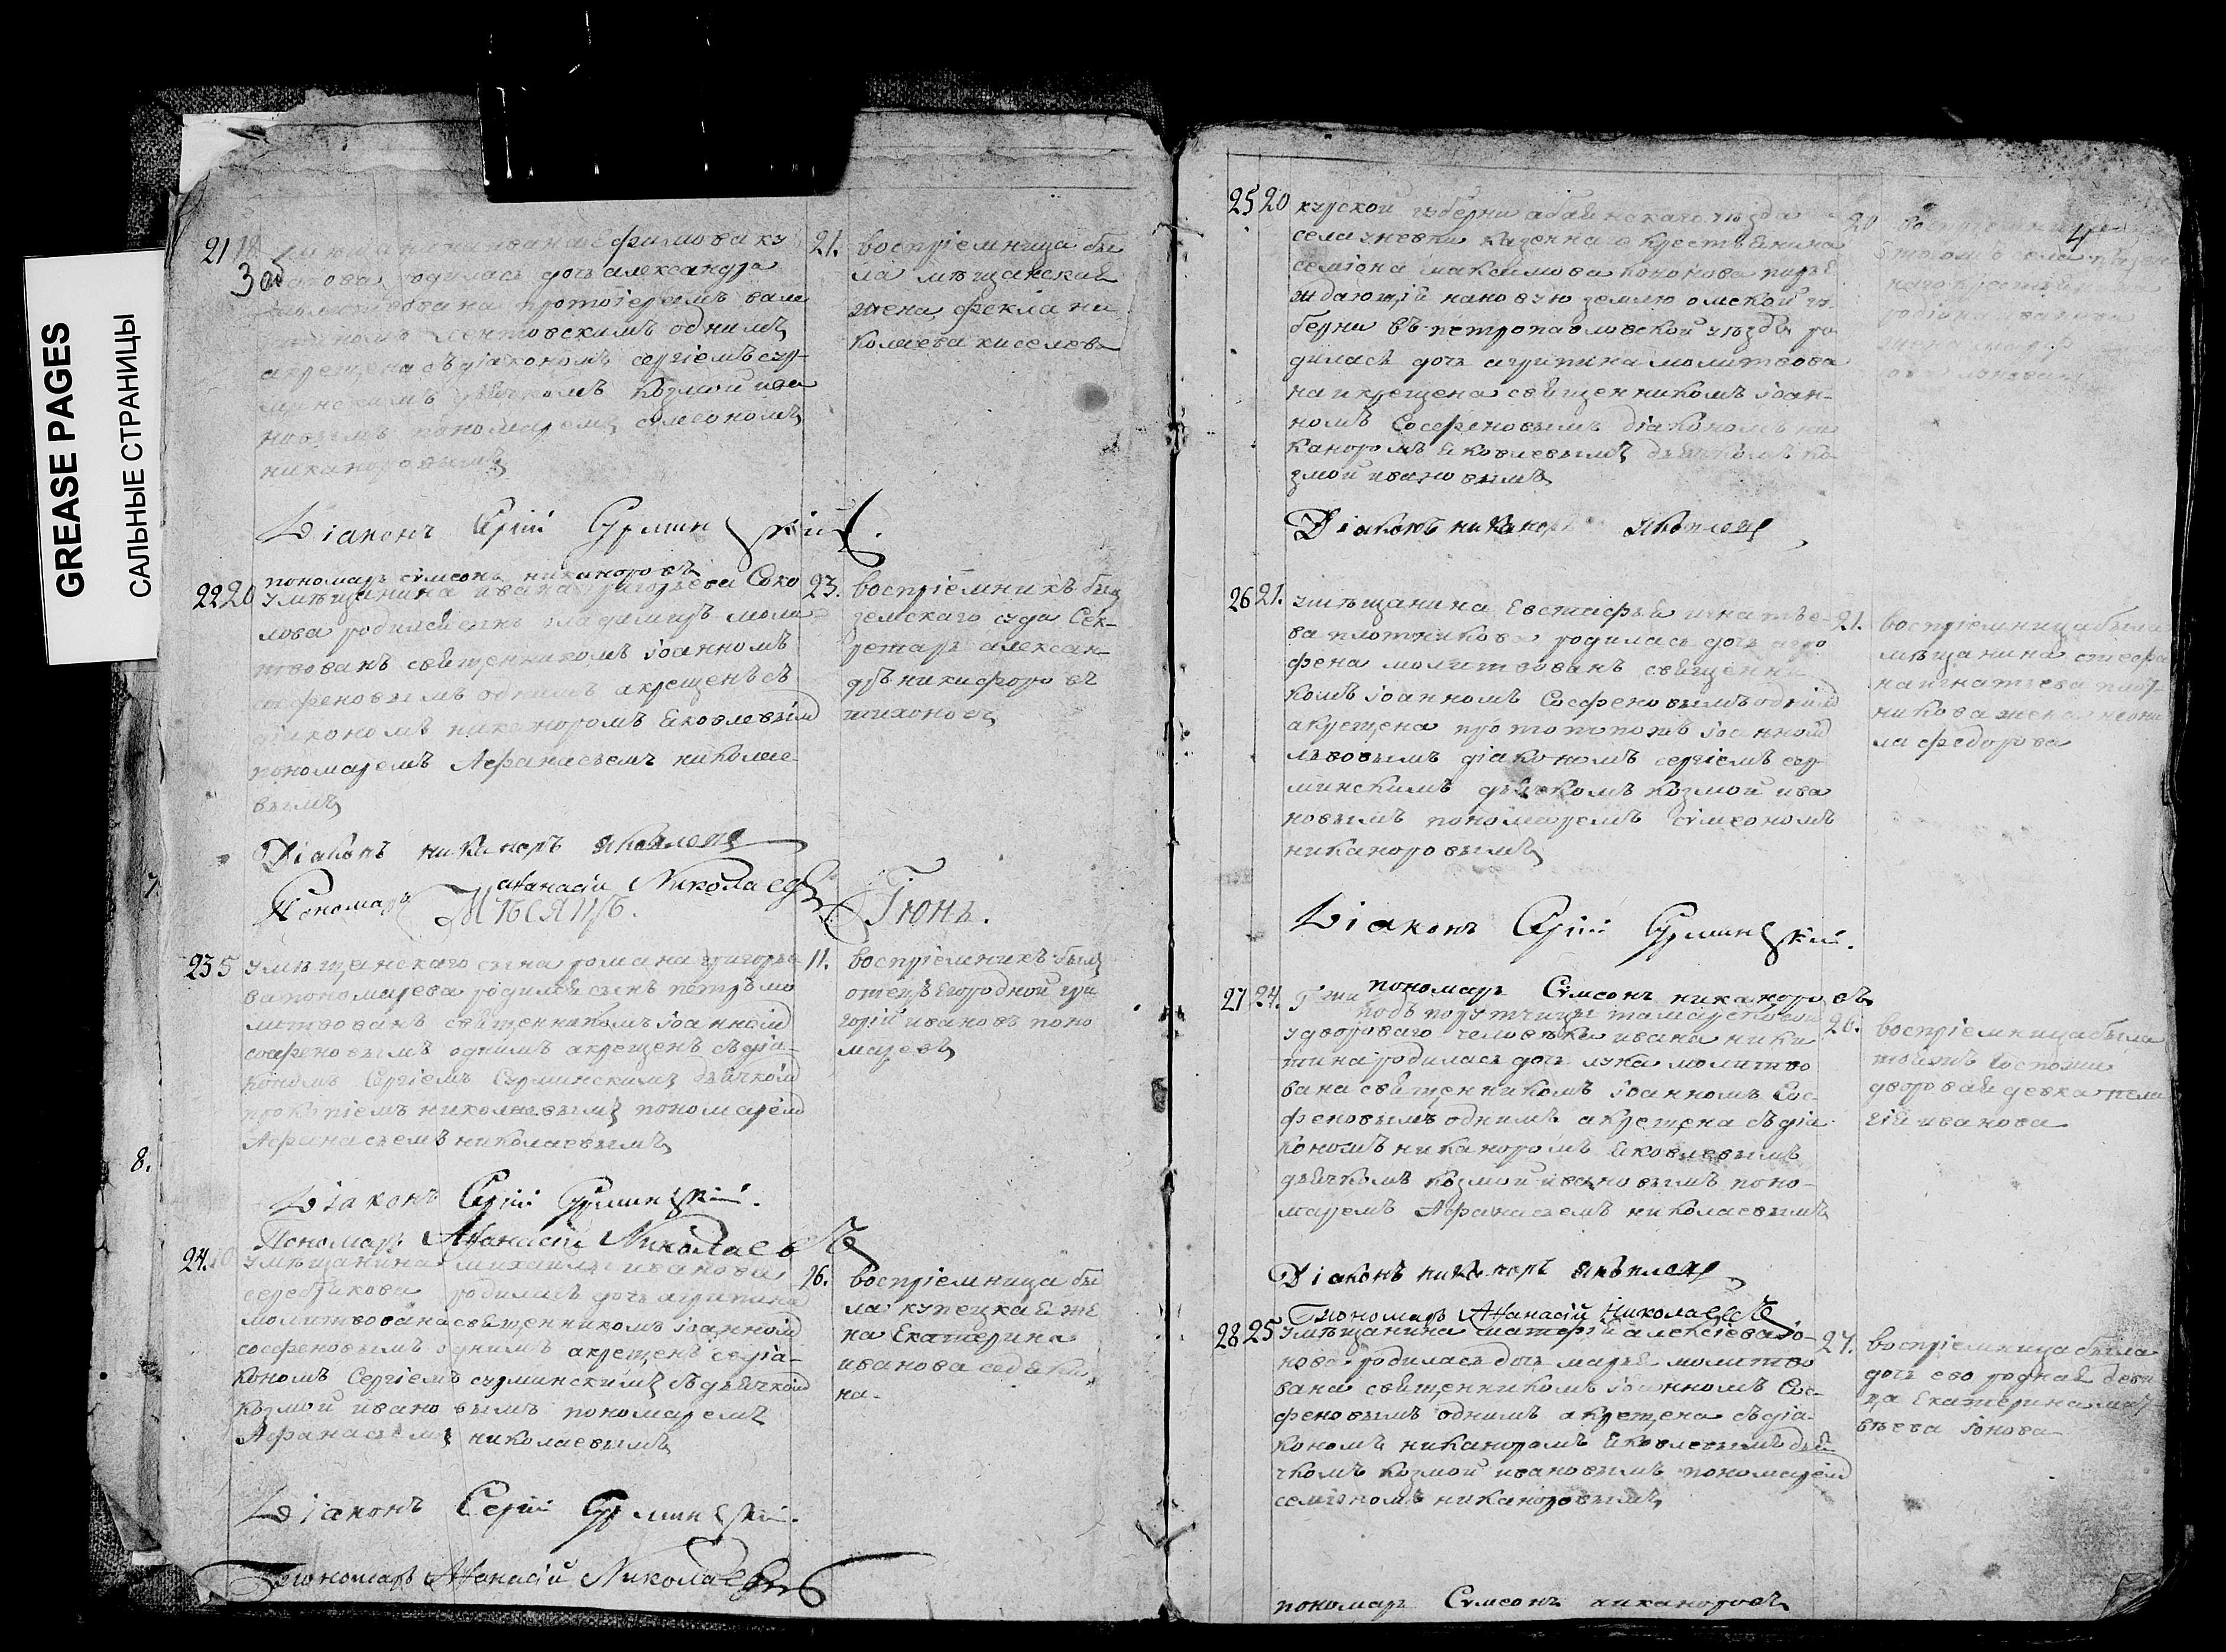 GREASE PAGES
САЛЬНЫЕ СТРАНИЦЫ
3 об
21
ивана Ефимова ку
родилась дочь александра
протоіереемъ
однимъ
акрещена съ діакономъ сергіемъ сур-
минскимъ дьячкомъ козмой ива
новымъ пономаремъ сѵмеономъ
никаноровымъ
21. воспріемница бы
ла мѣщанская
жена фекла ни
колаева киселева
Діаконъ Сергій Сурминскій.
пономарь сѵмеонъ никаноровъ
22 20 умѣщанина ивана григорьева Соко
лова родился сынъ владимиръ моли
твованъ священникомъ іоанномъ
сосфеновымъ однимъ акрещенъ съ
діакономъ никаноромъ Яковлевымъ
пономаремъ Афанасьемъ николае
вымъ
23. воспріемникъ былъ
земскаго суда Сек-
ретарь алексан-
дръ никифоровъ
тихоновъ
Діаконъ никаноръ яковлевъ
Пономарь Афанасій Николаевъ
МѢСЯЦЪ. Іюнь.
23 5 умѣщанскаго сына романа григорье
ва пономарева родился сынъ петръ мо
литвованъ священникомъ іоанномъ
сосфеновымъ однимъ акрещенъ съ діа-
кономъ Сергіемъ Сурминскимъ дьячкомъ
прокопіемъ николаевымъ пономаремъ
Афанасьемъ николаевымъ
11. воспріемникъ былъ
отецъ Его родной гри
горій ивановъ поно
маревъ
Діаконъ Сергій Сурминскій.
Пономарь Афанасій Николаевъ
24. 10 умѣщанина михайлы иванова
серебрикова родилась дочь агрипина
молитвована священникомъ іоанномъ
сосфеновымъ однимъ акрещенъ съ діа-
кономъ Сергіемъ сурминскимъ съ дьячкомъ
козмой ивановымъ пономаремъ
Афанасьемъ николаевымъ
16. воспріемница бы
ла купецкая же
на Екатерина
иванова седяки
на.
Діаконъ Сергій Сурминскій.
Пономарь Афанасій Николаевъ
4
25 20 курской губерни абаянскаго уѣзда
села уневки казеннаго крестьянина
семіона максимова кононова
нановую землю омской гу
берни въ петропавловской уѣздъ ро
дилась дочь агрипина молитвова
на икрещена священникомъ іоан-
номъ Сосфеновымъ діакономъ ни
каноромъ Яковлевымъ дьячкомъ ко
змой ивановымъ
20
Діаконъ никаноръ яковлевъ
26 21. умѣщанина Евстафья игнатье-
ва плотникова родилась дочь агро
фена молитвованъ священни
комъ іоанномъ Сосфеновымъ однимъ
акрещена протопопомъ іоанномъ
львовымъ діакономъ сергіемъ сур
минскимъ дьячкомъ козмой ива
новымъ пономаремъ сѵмеономъ
никаноровымъ
21. воспріемница была
мѣщанина стефа
на игнатьева плот-
никова жена неони
ла федорова
Діаконъ Сергій Сурминскій.
пономарь Сѵмеонъ никаноровъ
27 24. Гжи подпорутчицы
удвороваго человѣка ивана ники
тина родилась дочь лукія молитво
вана священникомъ іоанномъ Сос-
феновымъ однимъ акрещена съ діа
кономъ никаноромъ Яковлевымъ
дьячкомъ козмой ивановымъ поно-
маремъ Афанасьемъ николаевымъ
26. воспріемница была
тоижъ Госпожи
дворовая девка пела
гія иванова
Діаконъ никаноръ яковлевъ
Пономарь Афанасій Николаевъ
28 25 умѣщанина матфея алексіева іо-
нова родилась дочь марья молитво
вана священникомъ іоанномъ Сос-
феновымъ однимъ акрещена съ діа-
кономъ никаноромъ Яковлевымъ дья
чкомъ козмой ивановымъ пономаремъ
семіономъ никаноровымъ
27. воспріемница была
дочь ево родная деви
ца Екатерина мат-
вѣева іонова
пономарь Сѵмеонъ никаноровъ
8.